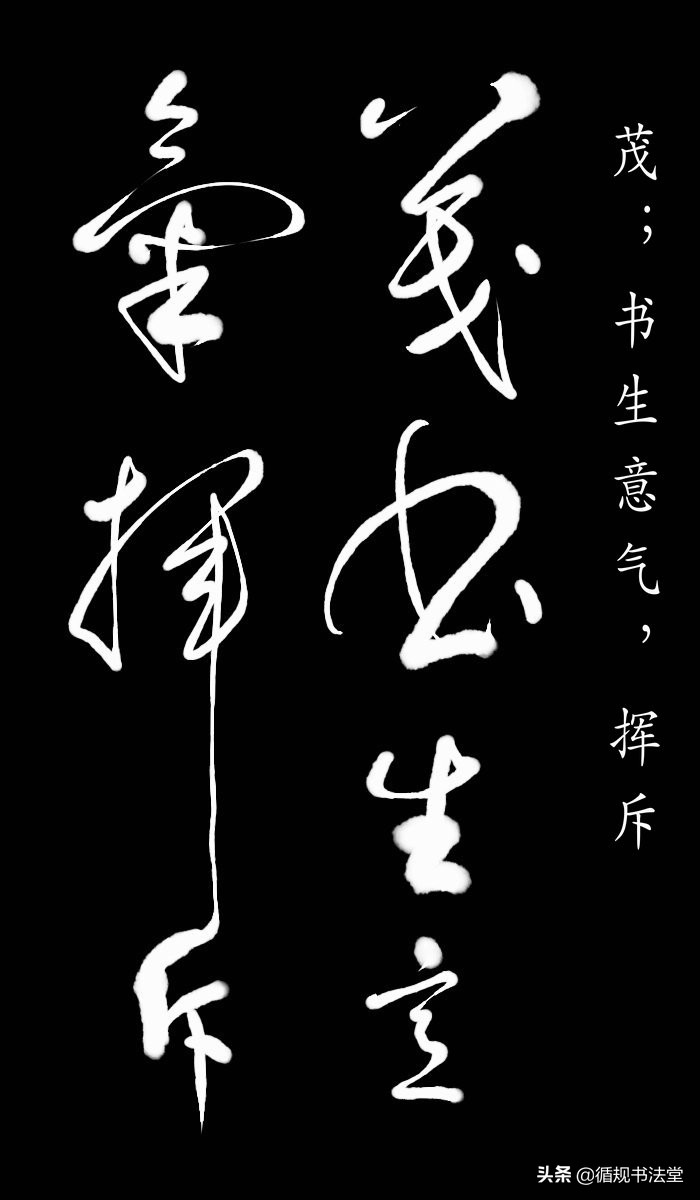 茂；书生意气，挥斥
茂书生意
氣揮斥
头条 @循规书法堂